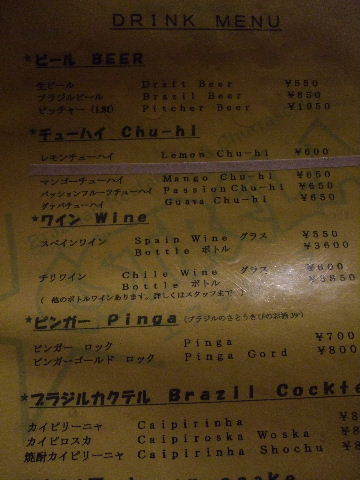 DRINK MENU
*ビール BEER
生ビール Draft Beer ¥550
ブラジルビール Brazil Beer ¥650
ピッチャー (1.8ℓ) Pitcher Beer ¥1950
*チューハイ Chu-hi
レモンチューハイ Lemon Chu-hi ¥600
マンゴーチューハイ Mango Chu-hi ¥650
パッションフルーツチューハイ Passion Chu-hi ¥650
グァバチューハイ Guava Chu-hi ¥650
*ワイン Wine
スペインワイン Spain Wine グラス ¥550
Bottle ボトル ¥3600
チリワイン Chile Wine グラス ¥600
Bottle ボトル ¥3850
( 他のボトルワインあります。詳しくはスタッフまで )
*ピンガー Pinga (ブラジルのさとうきびのお酒39°)
ピンガー ロック Pinga ¥700
ピンガーゴールド ロック Pinga Gord ¥800
*ブラジルカクテル Brazil Cockte
カイピリーニャ Caipirinha ¥8
カイピロスカ Caipiroska Woska ¥8
焼酎カイピリーニャ Caipirinha Shochu ¥8